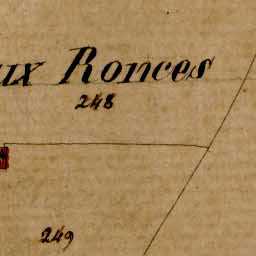 ux Ronces
248
249